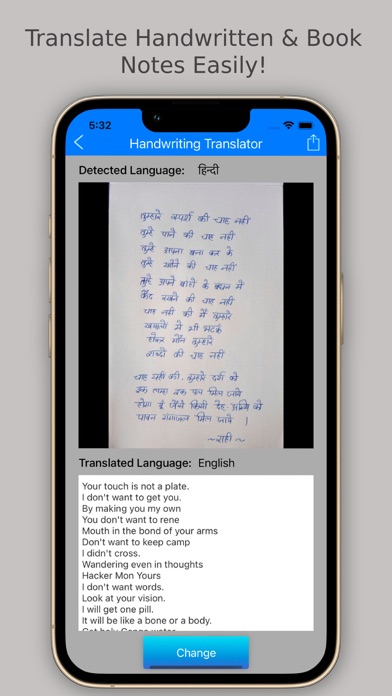 Translate Handwritten & Book
Notes Easily!
5:32
Handwriting Translator
Detected Language: हिन्दी
तुम्हारे स्पर्श की चाह नहीं
तुम्हे पाने की चाह नहीं
तुम्हे अपना बना कर के
तुम्हे खोने की चाह नहीं
तुम्हे अपने बाहों के बंधन में
कैद रखने की चाह नहीं
चाह नहीं की मैं तुम्हारे
ख्यालो में भी भटके
होकर मौन तुम्हारे
शब्दों की चाह नहीं
चाह यही की, तुम्हारे दर्श को
एक लम्हा एक पल मिल जाये
होगा यूं जैसे किसी देह-अस्थि को
पावन गंगाजल मिल जाये ।
~राही~
Translated Language: English
Your touch is not a plate.
I don't want to get you.
By making you my own
You don't want to rene
Mouth in the bond of your arms
Don't want to keep camp
I didn't cross.
Wandering even in thoughts
Hacker Mon Yours
I don't want words.
Look at your vision.
I will get one pill.
It will be like a bone or a body.
Get holy Ganga water
Change